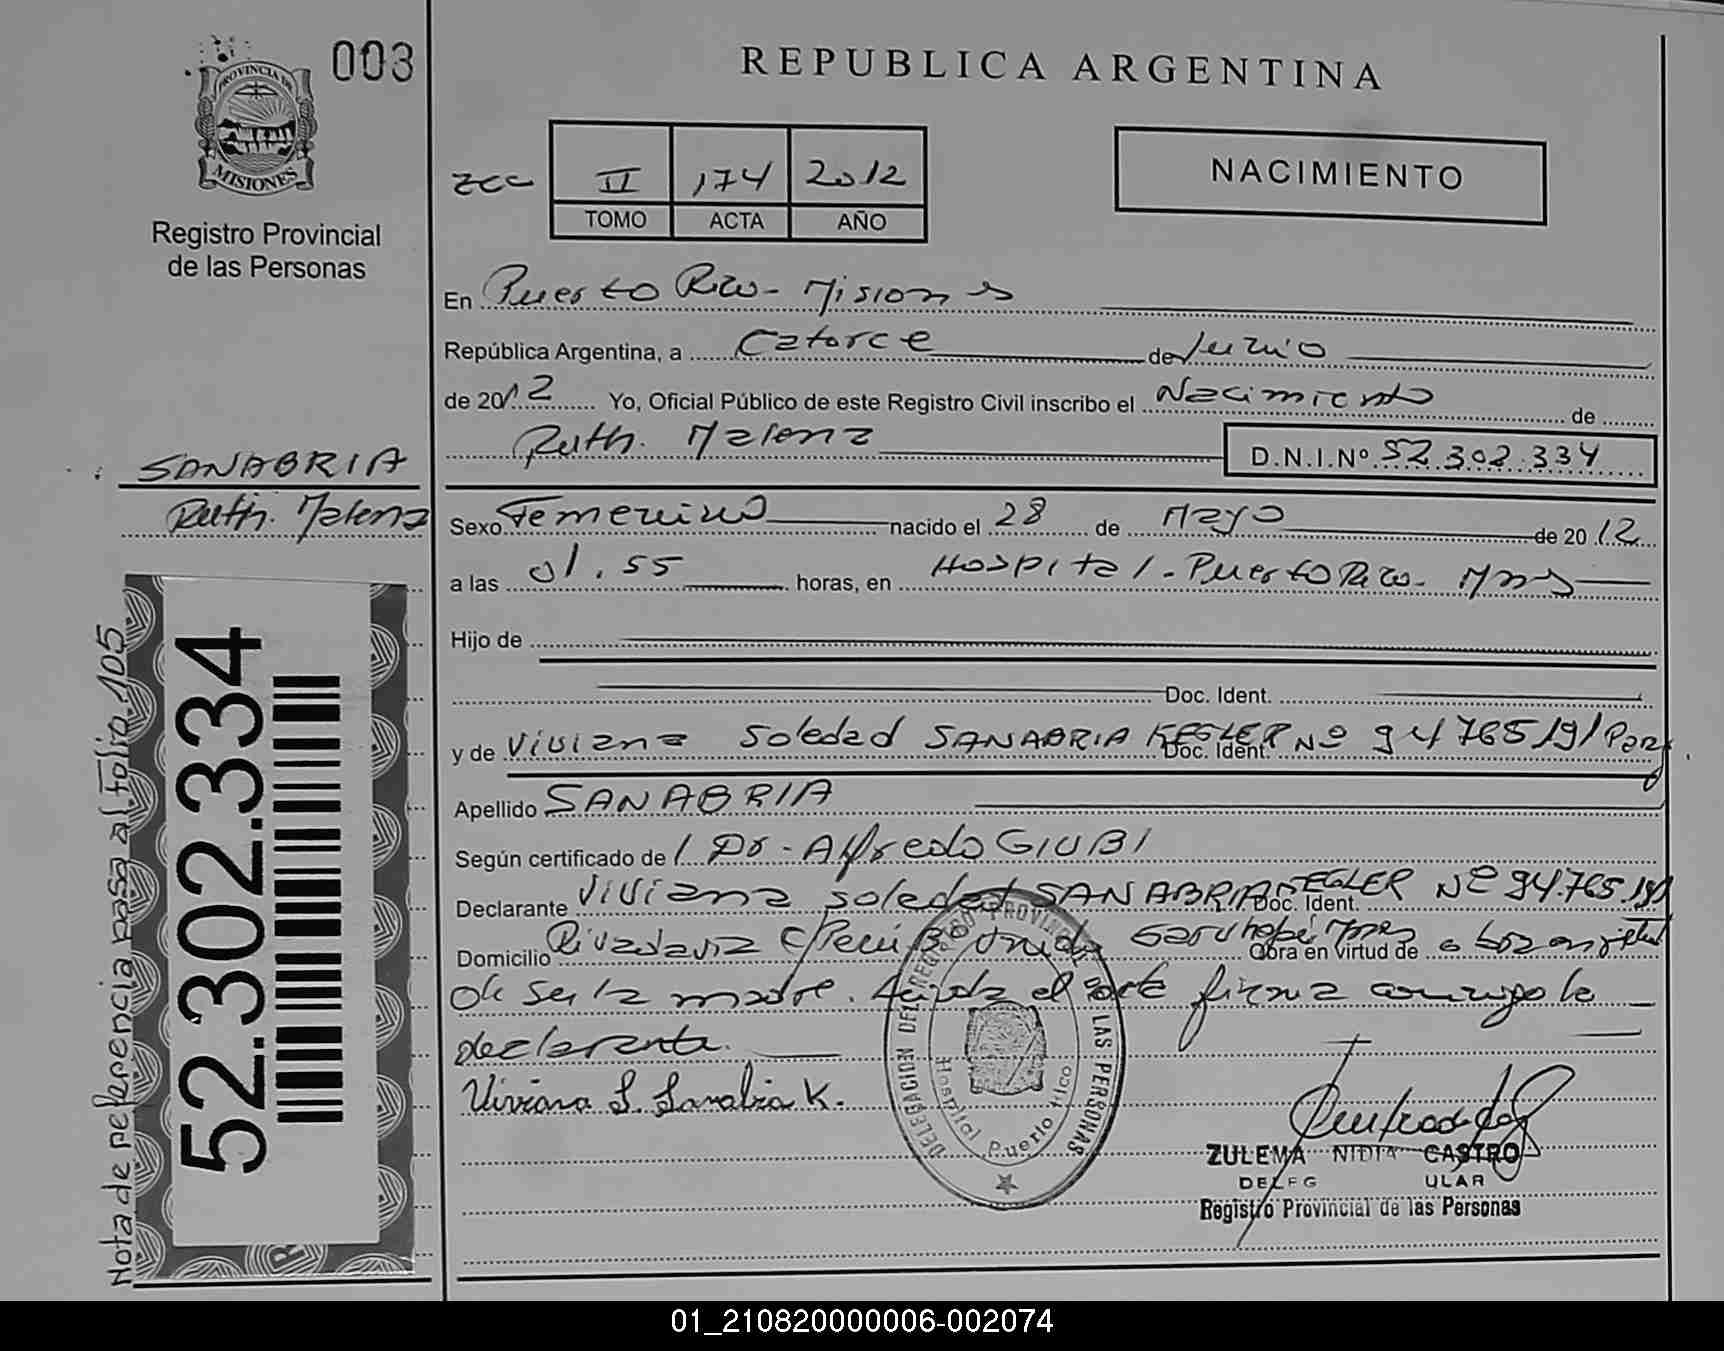 003
PROVINCIA DE
MISIONES
Registro Provincial
de las Personas
SANABRIA
Ruth. Malena
Nota de referencia pasa al folio 105
52.302.334
REPUBLICA ARGENTINA
II 174 2012
TOMO ACTA AÑO
NACIMIENTO
En Puerto Rico - Misiones
República Argentina, a Catorce de Junio
de 2012 Yo, Oficial Público de este Registro Civil inscribo el Nacimiento de
Ruth. Malena D.N.I.Nº 52.302.334
Sexo Femenino nacido el 28 de Mayo de 2012
a las 01.55 horas, en Hospital - Puerto Rico - Mnes
Hijo de
Doc. Ident.
y de Viviana Soledad SANABRIA KEGLER Doc. Ident. Nº 94765191 Par
Apellido SANABRIA
Según certificado de Dr. Alfredo GIUBI
Declarante Viviana Soledad SANABRIA KEGLER Doc. Ident. Nº 94.765.191
Domicilio Rivadavia c/Perú Bº Garuhapé Mnes Obra en virtud de
de ser la madre. Leída el acta firma conmigo la
declarante.
Viviana S. Sanabria K.
DELEGACION DEL REGISTRO PROVINCIAL DE LAS PERSONAS
Hospital Puerto Rico
ZULEMA NIDIA CASTRO
Registro Provincial de las Personas
01_210820000006-002074